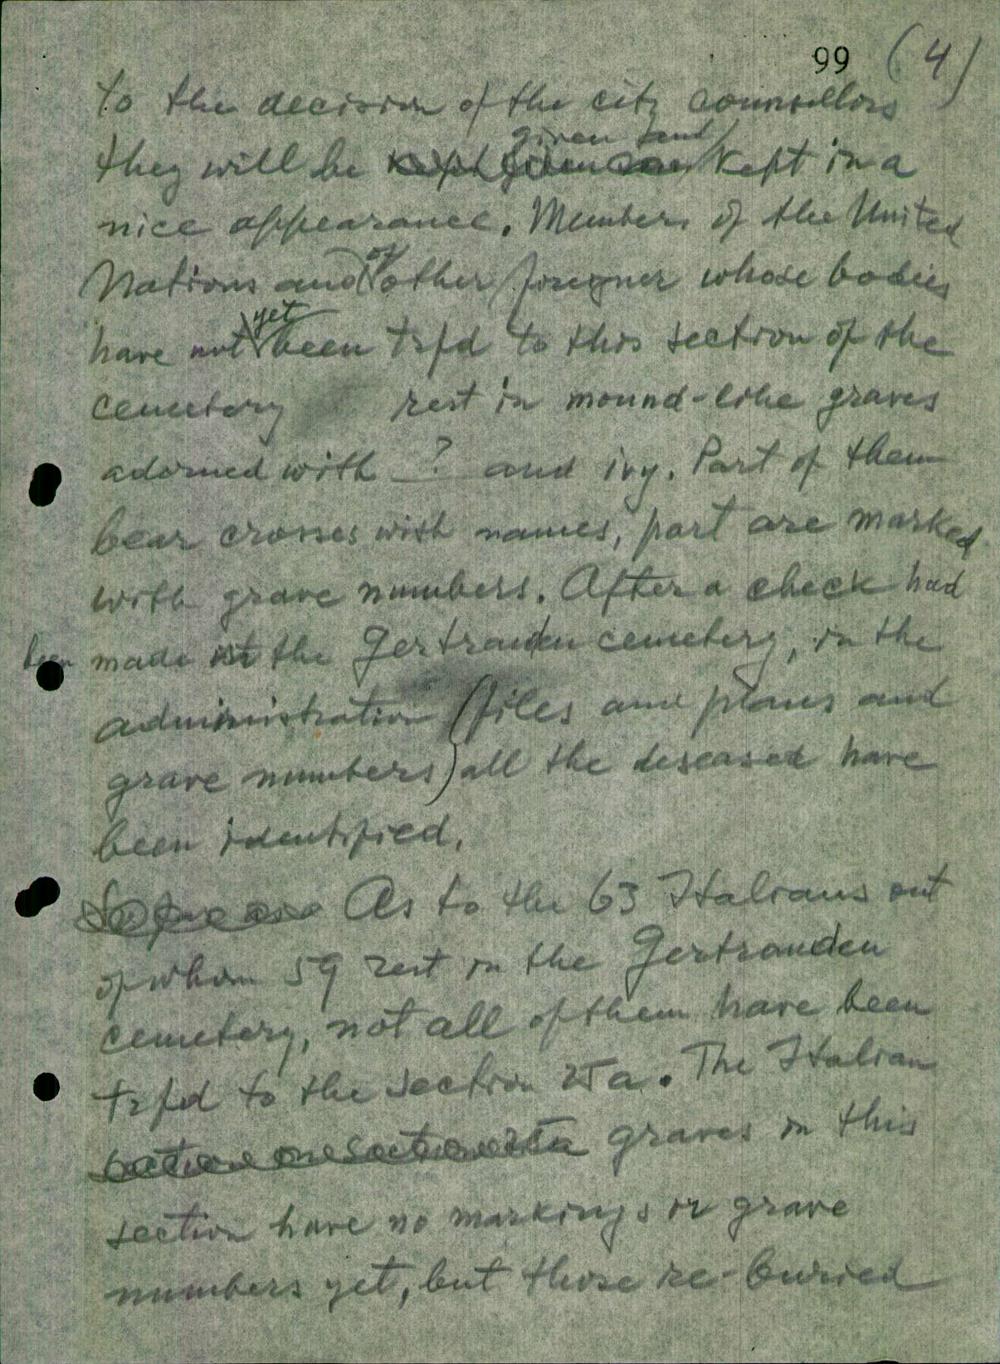 99 (4)
to the decision of the city counsillors
given and
they will be kept in a
nice appearance. Members of the United
Nations and of other foreigner whose bodies
yet
have not been trfd to this section of the
cemetery rest in mound-like graves
adorned with ? and ivy. Part of them
bear crosses with names, part are marked
with grave numbers. After a check had
been made at the Gertrauden cemetery, in the
administration (files and plans and
grave numbers) all the deseased have
been identified.
As to the 63 Italians out
of whom 59 rest in the Gertrauden
cemetery, not all of them have been
trfd to the section a. The Italian
graves in this
section have no markings or grave
numbers yet, but those re-buried